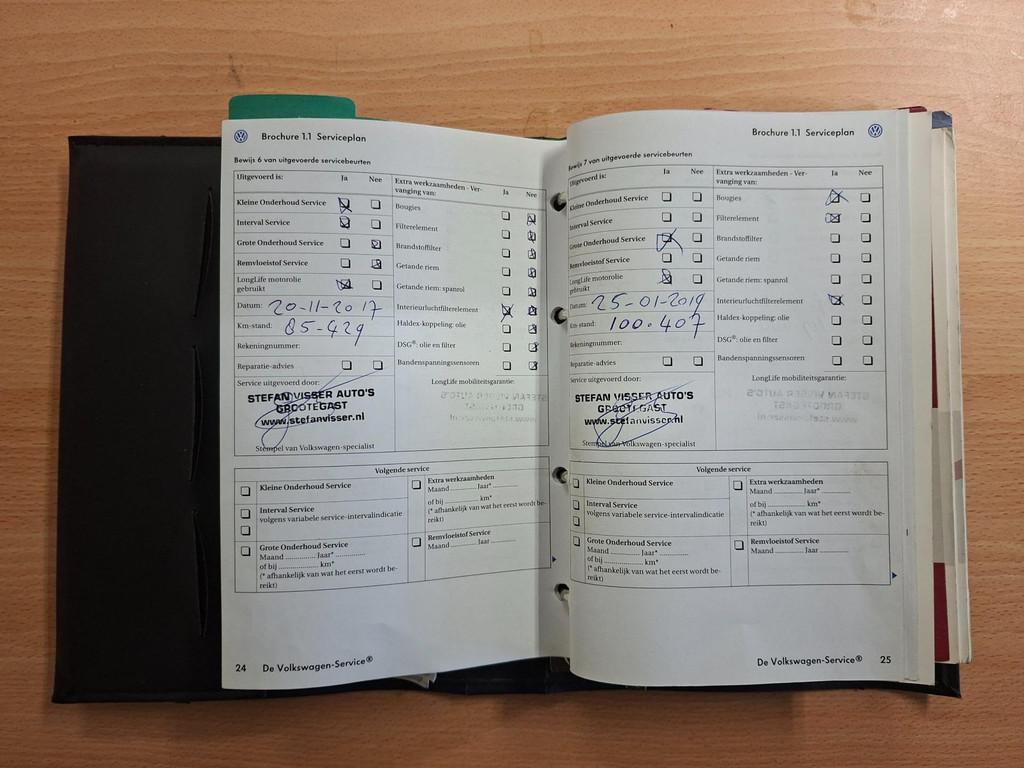 Brochure 1.1 Serviceplan
Bewijs 6 van uitgevoerde servicebeurten
Uitgevoerd is: Ja Nee
Kleine Onderhoud Service
Interval Service
Grote Onderhoud Service
Remvloeistof Service
LongLife motorolie
gebruikt
Datum: 20-11-2017
Km-stand: 85-429
Rekeningnummer:
Reparatie-advies
Service uitgevoerd door:
STEFAN VISSER AUTO'S
GROOTEGAST
www.stefanvisser.nl
Stempel van Volkswagen-specialist
Extra werkzaamheden - Ver-
vanging van: Ja Nee
Bougies
Filterelement
Brandstoffilter
Getande riem
Getande riem: spanrol
Interieurluchtfilterelement
Haldex-koppeling: olie
DSG®: olie en filter
Bandenspanningssensoren
LongLife mobiliteitsgarantie:
Volgende service
Kleine Onderhoud Service
Interval Service
volgens variabele service-intervalindicatie
Grote Onderhoud Service
Maand ............... Jaar* ...............
of bij ............... km*
(* afhankelijk van wat het eerst wordt be-
reikt)
Extra werkzaamheden
Maand ............ Jaar* ............
of bij ............ km*
(* afhankelijk van wat het eerst wordt be-
reikt)
Remvloeistof Service
Maand ............ Jaar ............
24 De Volkswagen-Service®
Brochure 1.1 Serviceplan
Bewijs 7 van uitgevoerde servicebeurten
Uitgevoerd is: Ja Nee
Kleine Onderhoud Service
Interval Service
Grote Onderhoud Service
Remvloeistof Service
LongLife motorolie
gebruikt
Datum: 25-01-2019
Km-stand: 100.407
Rekeningnummer:
Reparatie-advies
Service uitgevoerd door:
STEFAN VISSER AUTO'S
GROOTEGAST
www.stefanvisser.nl
Stempel van Volkswagen-specialist
Extra werkzaamheden - Ver-
vanging van: Ja Nee
Bougies
Filterelement
Brandstoffilter
Getande riem
Getande riem: spanrol
Interieurluchtfilterelement
Haldex-koppeling: olie
DSG®: olie en filter
Bandenspanningssensoren
LongLife mobiliteitsgarantie:
Volgende service
Kleine Onderhoud Service
Interval Service
volgens variabele service-intervalindicatie
Grote Onderhoud Service
Maand ............... Jaar* ...............
of bij ............... km*
(* afhankelijk van wat het eerst wordt be-
reikt)
Extra werkzaamheden
Maand ............ Jaar* ............
of bij ............ km*
(* afhankelijk van wat het eerst wordt be-
reikt)
Remvloeistof Service
Maand ............ Jaar ............
De Volkswagen-Service® 25